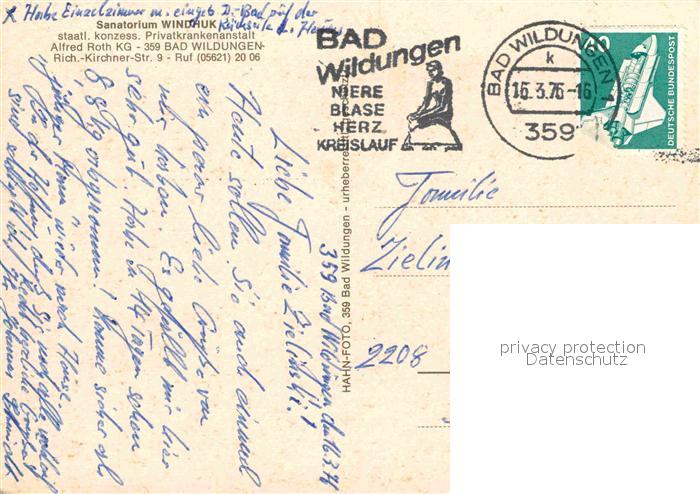 x Habe Einzelzimmer m. eingeb. D.-Bad auf der
Rückseite d. Hauses
Sanatorium WINDHUK
staatl. konzess. Privatkrankenanstalt
Alfred Roth KG - 359 BAD WILDUNGEN
Rich.-Kirchner-Str. 9 - Ruf (05621) 20 06
BAD
Wildungen
NIERE
BLASE
HERZ
KREISLAUF
BAD WILDUNGEN 1
k
16.3.76-16
359
DEUTSCHE BUNDESPOST
HAHN-FOTO, 359 Bad Wildungen - urheberrechtlich
359 Bad Wildungen, den 16.3.76
Liebe Familie
Heute sollen Sie auch einmal
ein paar liebe Grüße von
mir haben. Es gefällt mir hier
sehr gut. Habe in 14 Tagen schon
8 kg abgenommen! Komme sicher als
junger Mann wieder nach Hause.
In der Hoffnung, daß Sie
Familie
2208
privacy protection
Datenschutz